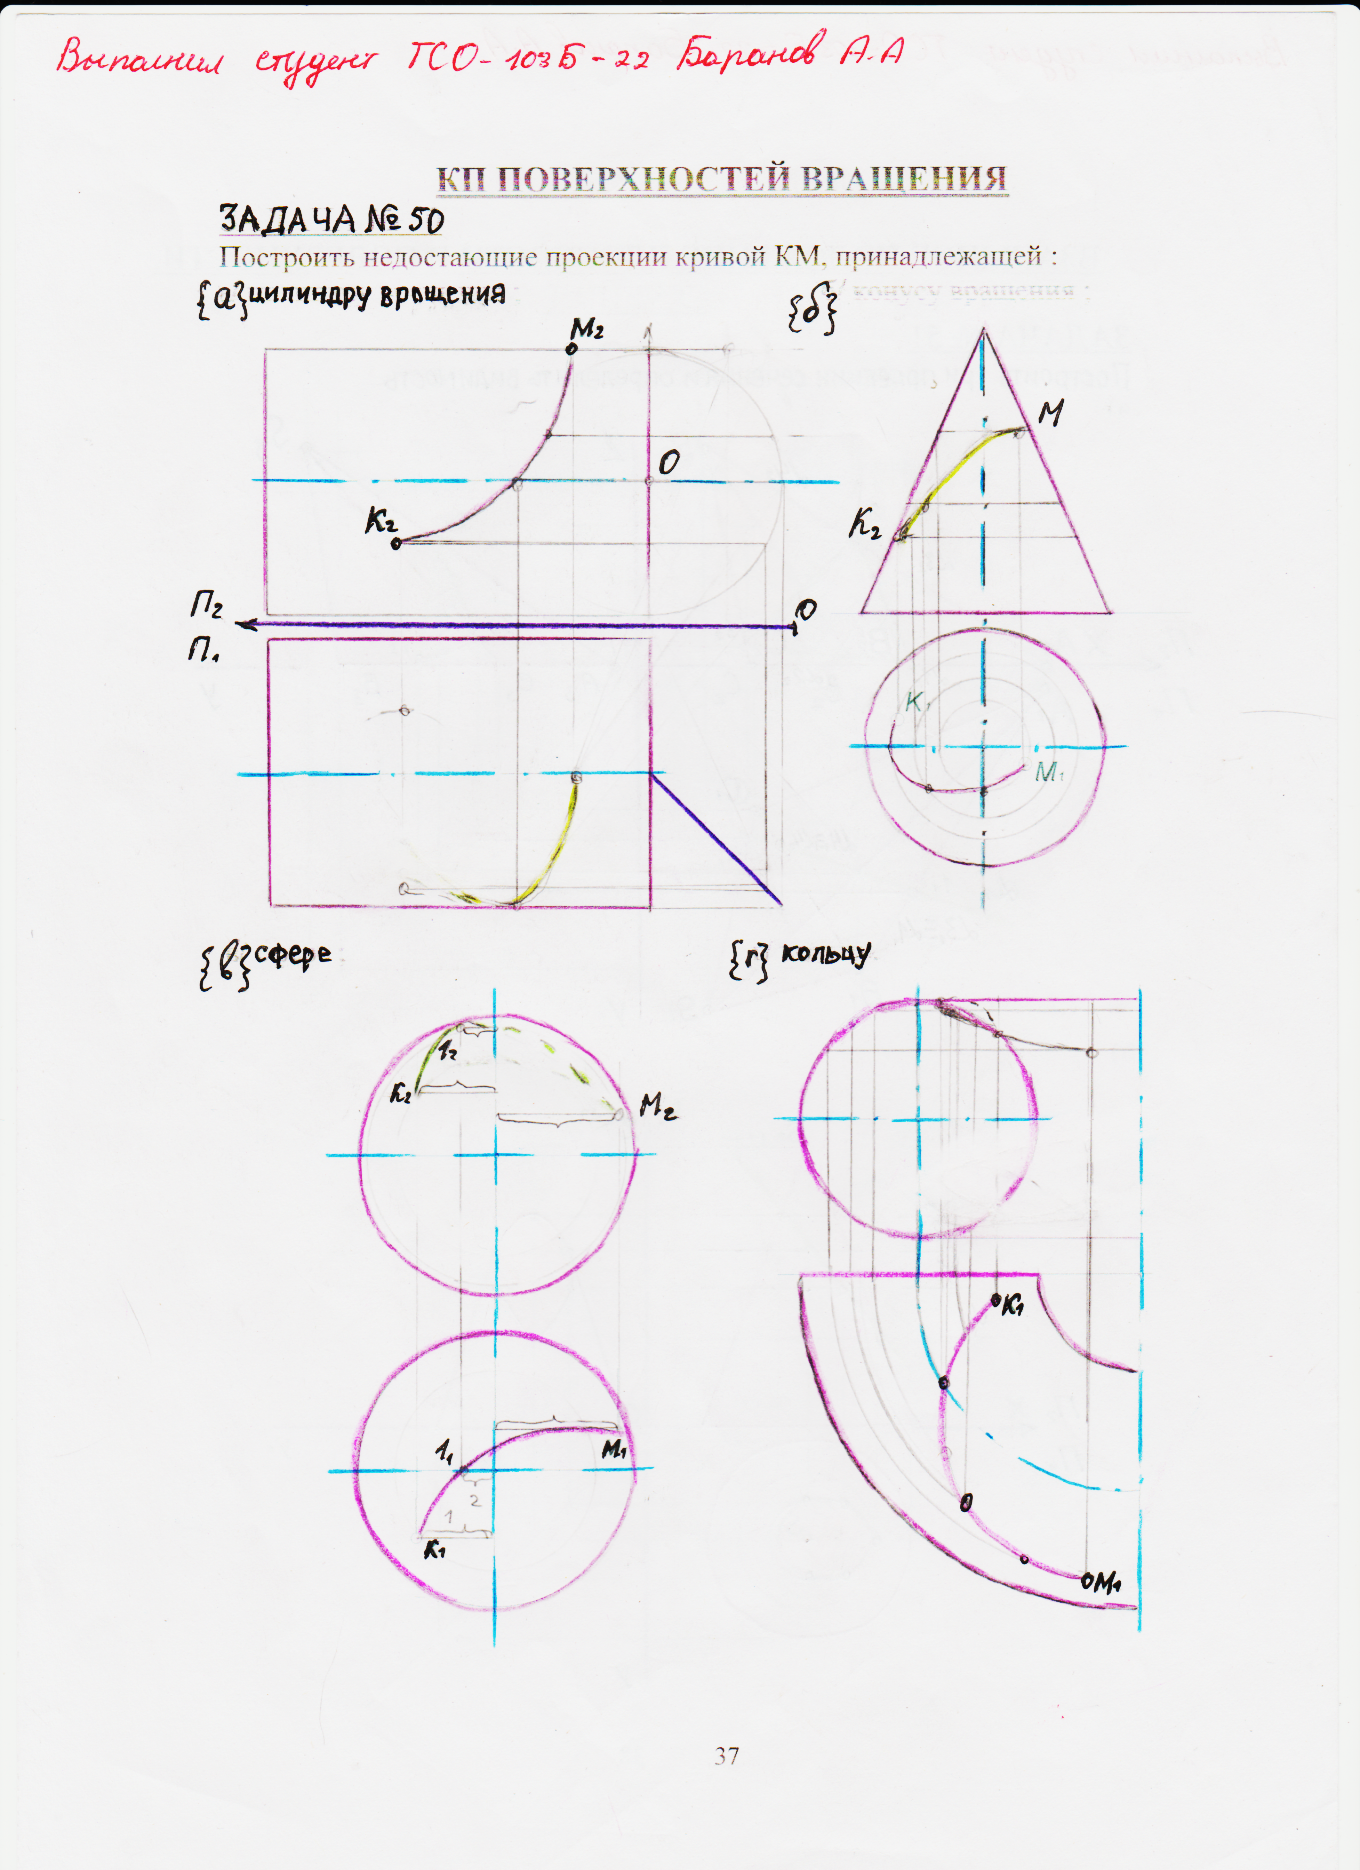 Выполнил студент ТСО-103Б-22 Баранов А.А
КП ПОВЕРХНОСТЕЙ ВРАЩЕНИЯ
ЗАДАЧА №50
Построить недостающие проекции кривой КМ, принадлежащей :
{а} цилиндру вращения
{б} конусу вращения :
M₂
O
K₂
M
K₂
П₂
O
П₁
K₁
M₁
{в} сфере
{г} кольцу
1₂
K₂
M₂
K₁
1₁
M₁
2
1
K₁
M₁
37